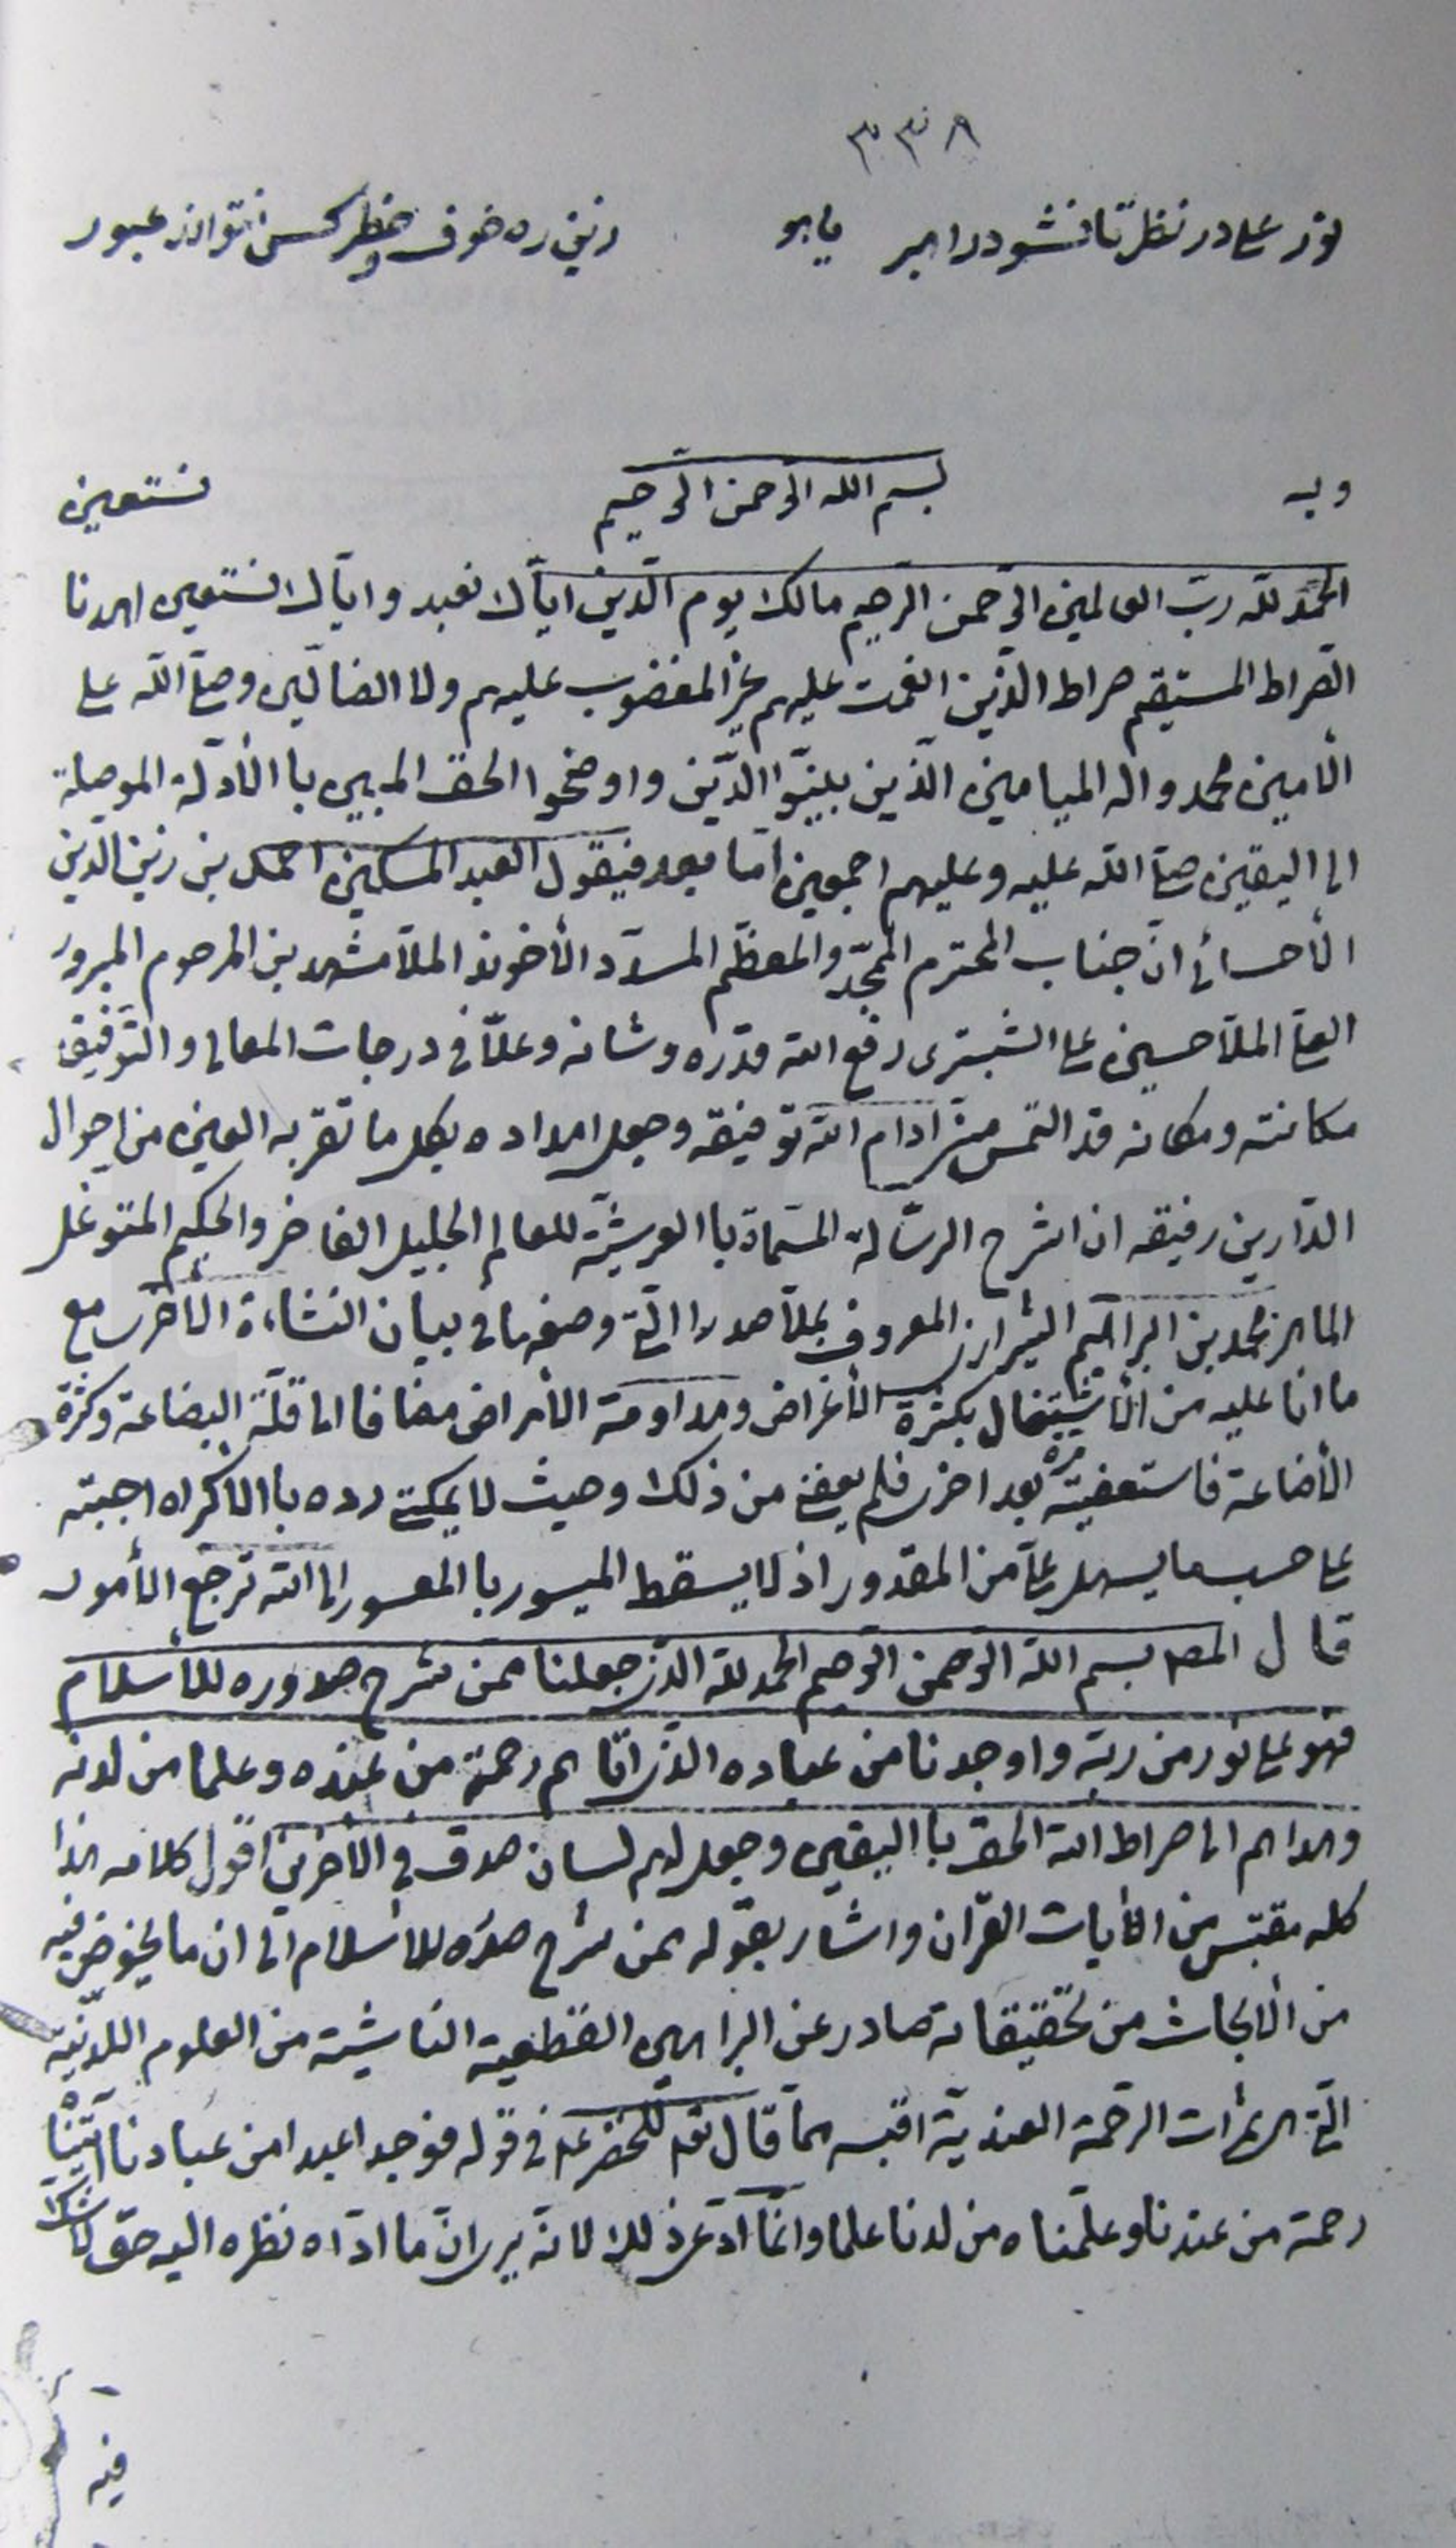 ٣٣٨
نور علی در نظرت تا نشود راهبر یا هو زین ره خوف و خطر کس نتواند عبور
وبه بسم الله الرحمن الرحيم نستعين
الحمد لله ربّ العالمين الرّحمن الرّحيم مالك يوم الدّين ايّاك نعبد وايّاك نستعين اهدنا
الصّراط المستقيم صراط الّذين انعمت عليهم غير المغضوب عليهم ولا الضالّين وصلّى الله على
الأمين محمد واله الميامين الّذين بيّنوا الدّين واوضحوا الحق المبين باالأدلّة الموصلة
الى اليقين صلّى الله عليه وعليهم اجمعين امّا بعد فيقول العبد المسكين احمد بن زين الدّين
الأحسائى انّ جناب المحترم الممجّد والمعظّم المسدّد الأخوند الملّا مشهد بن المرحوم المبرور
العلى الملّا حسين على الشبسترى رفع الله قدره وشانه وعلّا فى درجات المعالى والتّوفيق
مكانته ومكانه قد التمس منّى ادام الله توفيقه وجعل امداده بكل ما تقرّ به العين من احوال
الدّارين رفيقه ان اشرح الرسّالة المسّماة باالعرشيّة للعالم الجليل الفاخر والحكيم المتوغّل
الماهر محمد بن ابراهيم الشيرازى المعروف بملّا صدرا الّتى وضعها فى بيان النشاءة الأخرى مع
ما انا عليه من الأشتغال بكثرة الأغراض ومداومة الأمراض مضافا الى قلّة البضاعة وكثرة
الأضاعة فاستعفيته مرّة بعد اخرى فلم يعفنى من ذلك وحيث لا يمكننى ردّه باالأكراه اجبته
على حسب ما يسهل علىّ من المقدور اذ لا يسقط الميسور باالمعسور الى الله ترجع الأمور
قال المصه بسم الله الرّحمن الرّحيم الحمد لله الذى جعلنا ممّن شرح صدوره للأسلام
فهو على نور من ربّه واوجدنا من عباده الذى اتاهم رحمة من عنده وعلما من لدنه
وهداهم الى صراط الله الحق باليقين وجعل لهم لسان صدق فى الأخرين اقول كلامه هذا
كله مقتبس من الأيات القرآن واشار بقوله ممّن شرح صدره للأسلام الى ان ما يخوض فيه
من الأبحاث من تحقيقاته صادر عن البراهين القطعية الناشية من العلوم اللّدنيّة
الّتى هى ثمرات الرحمة العنديّة اقتبسه ممّا قال تعه للخضر عله فى قوله فوجدا عبدا من عبادنا اتيناه
رحمة من عندنا وعلّمناه من لدنا علما وانّما ادّعى ذلك لانّه يرى انّ ما ادّاه نظره اليه حق لا شك
فيه